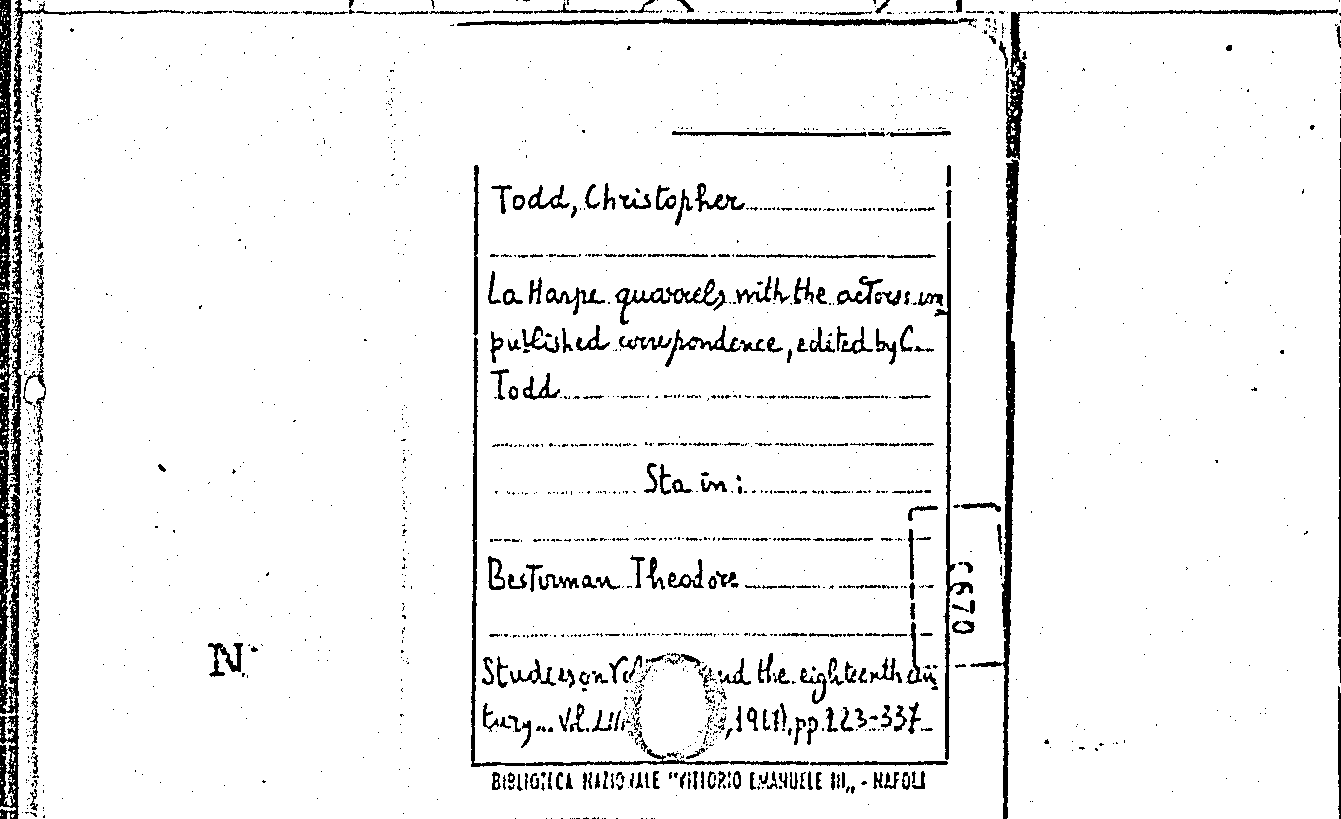 Todd, Christopher
La Harpe quarrels with the actors: un
published correspondence, edited by C.
Todd
Sta in:
Besterman Theodore
Studies on and the eighteenth cen
tury... Vol. pp. 223-337
BIBLIOTECA NAZIONALE "VITTORIO EMANUELE III„ - NAPOLI
C670
N